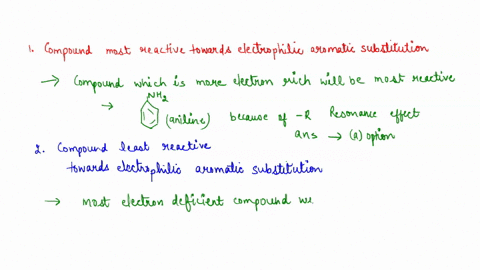 1. Compound most reactive towards electrophilic aromatic substitution
→ Compound which is more electron rich will be most reactive
NH2
→ (aniline) because of -R Resonance effect
ans → (a) option
2. Compound least reactive
towards electrophilic aromatic substitution
→ Most electron deficient compound we